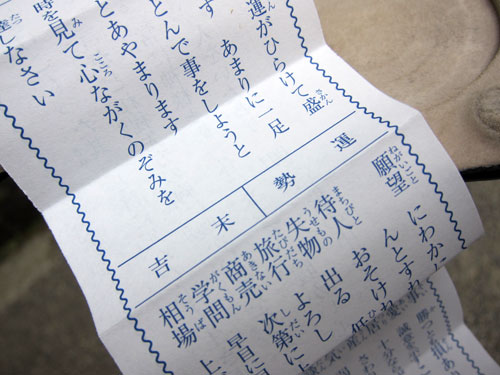 運がひらけて盛
す あまりに一足
とんで事をしようと
とあやまります
時を見て心ながくのぞみを
達しなさい
運勢 末吉
願望 にわか
んとすれ
待人 おそけれ
失物 出る
旅行 よろし
商売 次第に
学問 早目に
相場 上